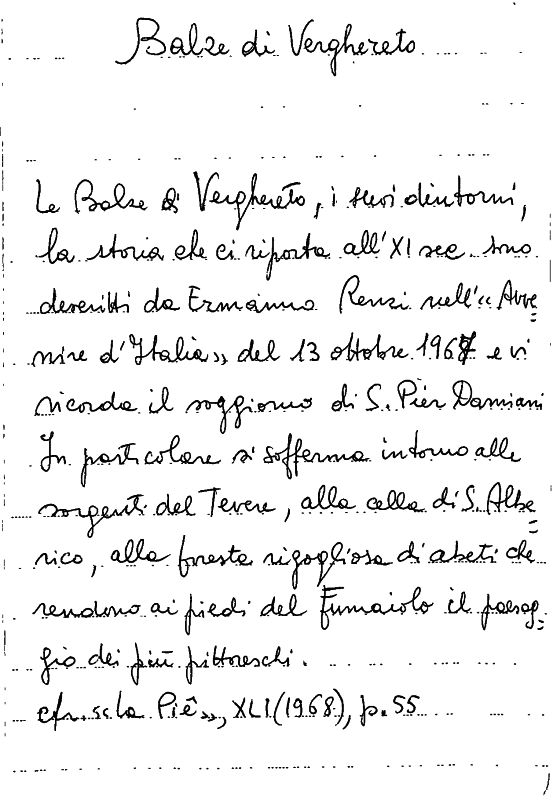 Balze di Verghereto
Le Balze di Verghereto, i suoi dintorni,
la storia che ci riporta all'XI sec. sono
descritti da Ermanno Renzi nell'« Avve
nire d'Italia» del 13 ottobre 1967 e vi
ricorda il soggiorno di S. Pier Damiani
In particolare si sofferma intorno alle
sorgenti del Tevere, alla cella di S. Albe
rico, alla foresta rigogliosa di abeti che
rendono ai piedi del Fumaiolo il paesag-
gio dei più pittoreschi.
cfr. «la Piê», XLI (1968), p. 55